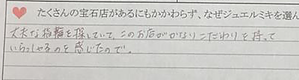 たくさんの宝石店があるにもかかわらず、なぜジュエルミキを選ん
丈夫な指輪を探していて、このお店がかなりこだわりを持って
いらっしゃるのを感じたので。